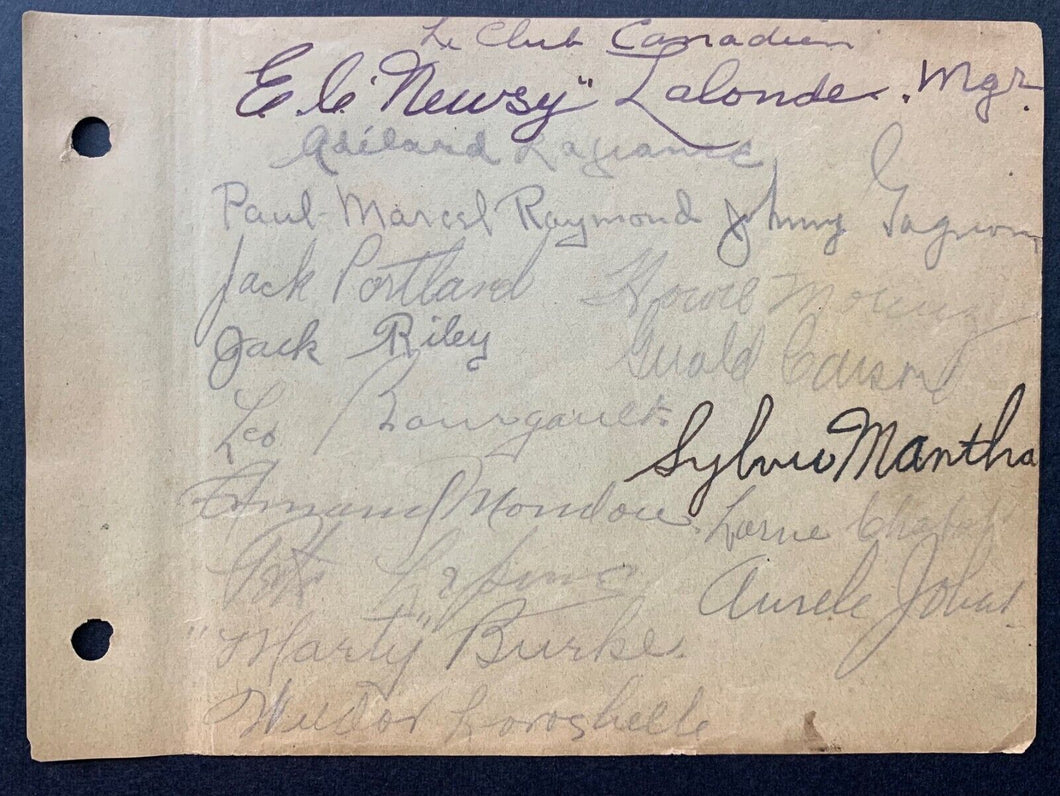 Le Club Canadien
E. C. "Newsy" Lalonde. Mgr.
Adélard Lafrance
Paul-Marcel Raymond Johnny Gagnon
Jack Portland Howie Morenz
Jack Riley Gerald Carson
Leo Bourgault
Sylvio Mantha
Armand Mondou Lorne Chabot
Pit Lepine Aurele Joliat
"Marty" Burke.
Wildor Larochelle